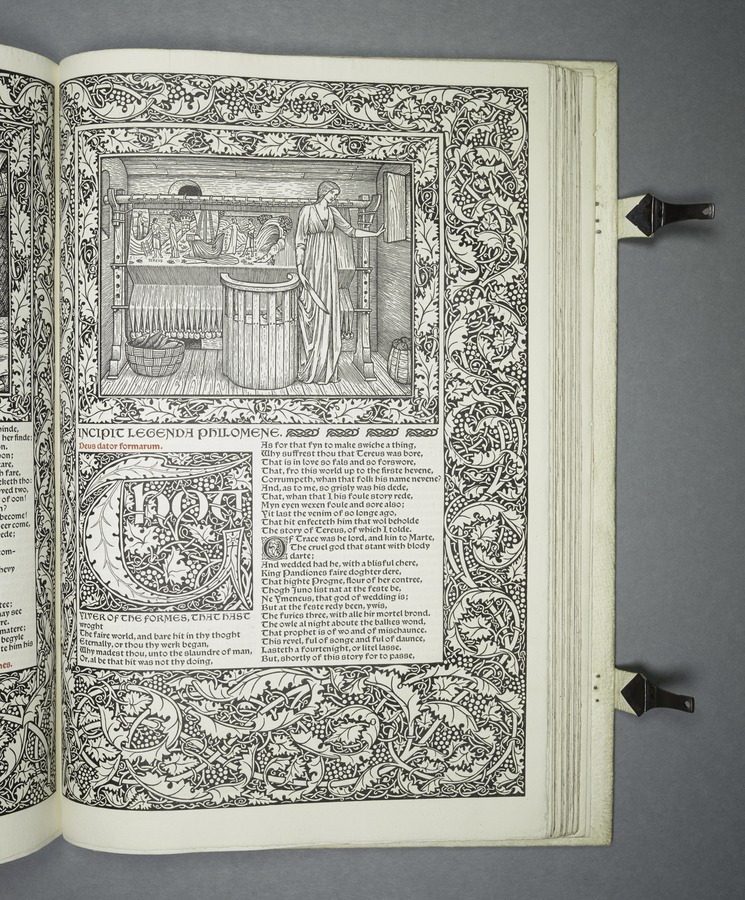 binde,
her finde:
on.
pon;
care,
h fare,
keth tho:
rved two,
of oon!
n?
become!
eer come,
ede;
com-
hevy
tee;
nay see
re.
matere;
begyle
te him his
nes.
TEREUS
INCIPIT LEGENDA PHILOMENE.
Deus dator formarum.
Thou
YIVER OF THE FORMES, THAT HAST
wroght
The faire world, and bare hit in thy thoght
Eternally, or thou thy werk began,
Why madest thou, unto the slaundre of man,
Or, al be that hit was not thy doing,
As for that fyn to make swiche a thing,
Why suffrest thou that Tereus was bore,
That is in love so fals and so forswore,
That, fro this world up to the firste hevene,
Corrumpeth, whan that folk his name nevene?
And, as to me, so grisly was his dede,
That, whan that I his foule story rede,
Myn eyen wexen foule and sore also;
Yit last the venim of so longe ago,
That hit enfecteth him that wol beholde
The story of Tereus, of which I tolde.
Of Trace was he lord, and kin to Marte,
The cruel god that stant with blody
darte;
And wedded had he, with a blisful chere,
King Pandiones faire doghter dere,
That highte Progne, flour of her contree,
Thogh Juno list nat at the feste be,
Ne Ymeneus, that god of wedding is;
But at the feste redy been, ywis,
The furies three, with alle hir mortel brond.
The owle al night aboute the balkes wond,
That prophet is of wo and of mischaunce.
This revel, ful of songe and ful of daunce,
Lasteth a fourtenight, or litel lasse.
But, shortly of this story for to passe,